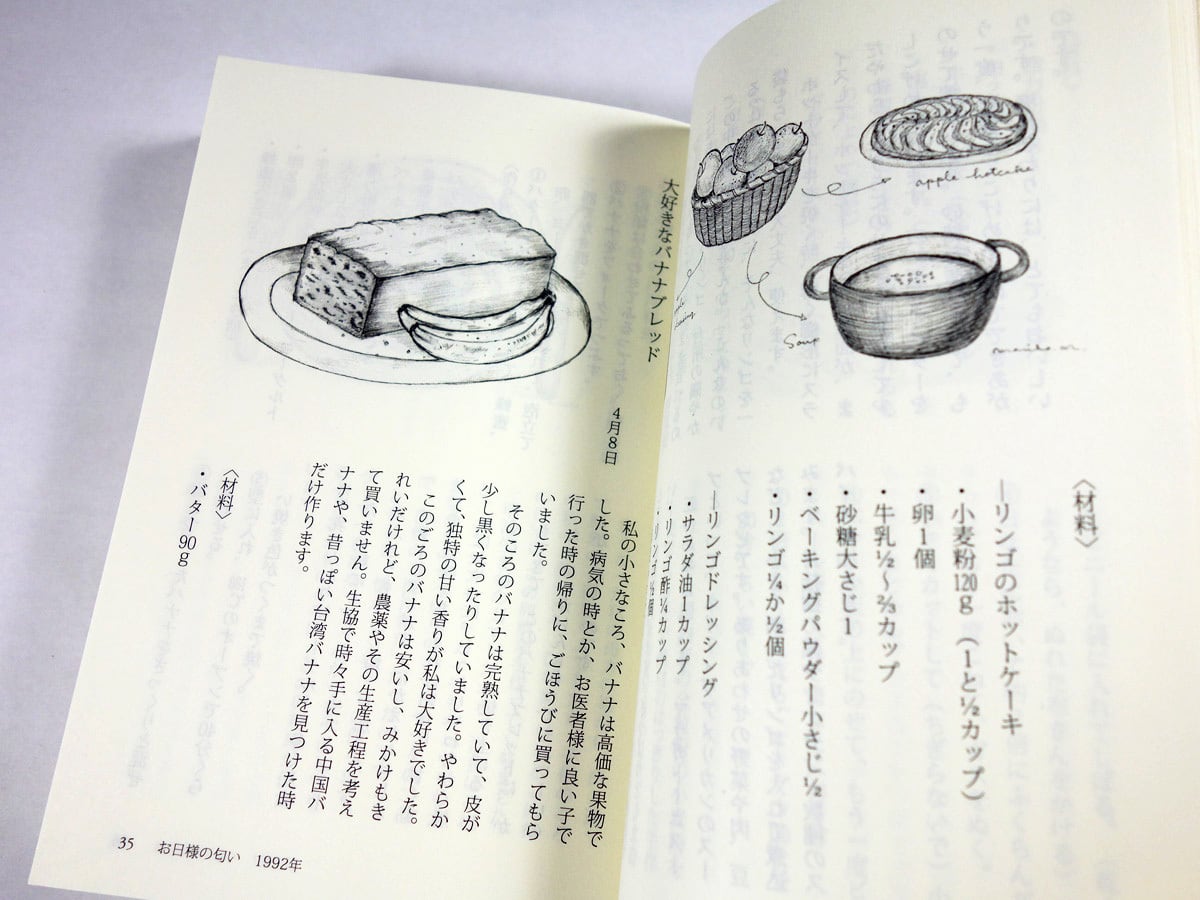 apple hotcake
Soup
〈材料〉
―リンゴのホットケーキ
・小麦粉120g（1と½カップ）
・卵1個
・牛乳½〜⅔カップ
・砂糖大さじ1
・ベーキングパウダー小さじ½
・リンゴ¼か½個
―リンゴドレッシング
・サラダ油1カップ
・リンゴ酢¼カップ
・リンゴ½個
大好きなバナナブレッド
4月8日
私の小さなころ、バナナは高価な果物で
した。病気の時とか、お医者様に良い子で
行った時の帰りに、ごほうびに買ってもら
いました。
そのころのバナナは完熟していて、皮が
少し黒くなったりしていました。やわらか
くて、独特の甘い香りが私は大好きでした。
このごろのバナナは安いし、みかけもき
れいだけれど、農薬やその生産工程を考え
て買いません。生協で時々手に入る中国バ
ナナや、昔っぽい台湾バナナを見つけた時
だけ作ります。
〈材料〉
・バター90g
35 お日様の匂い 1992年